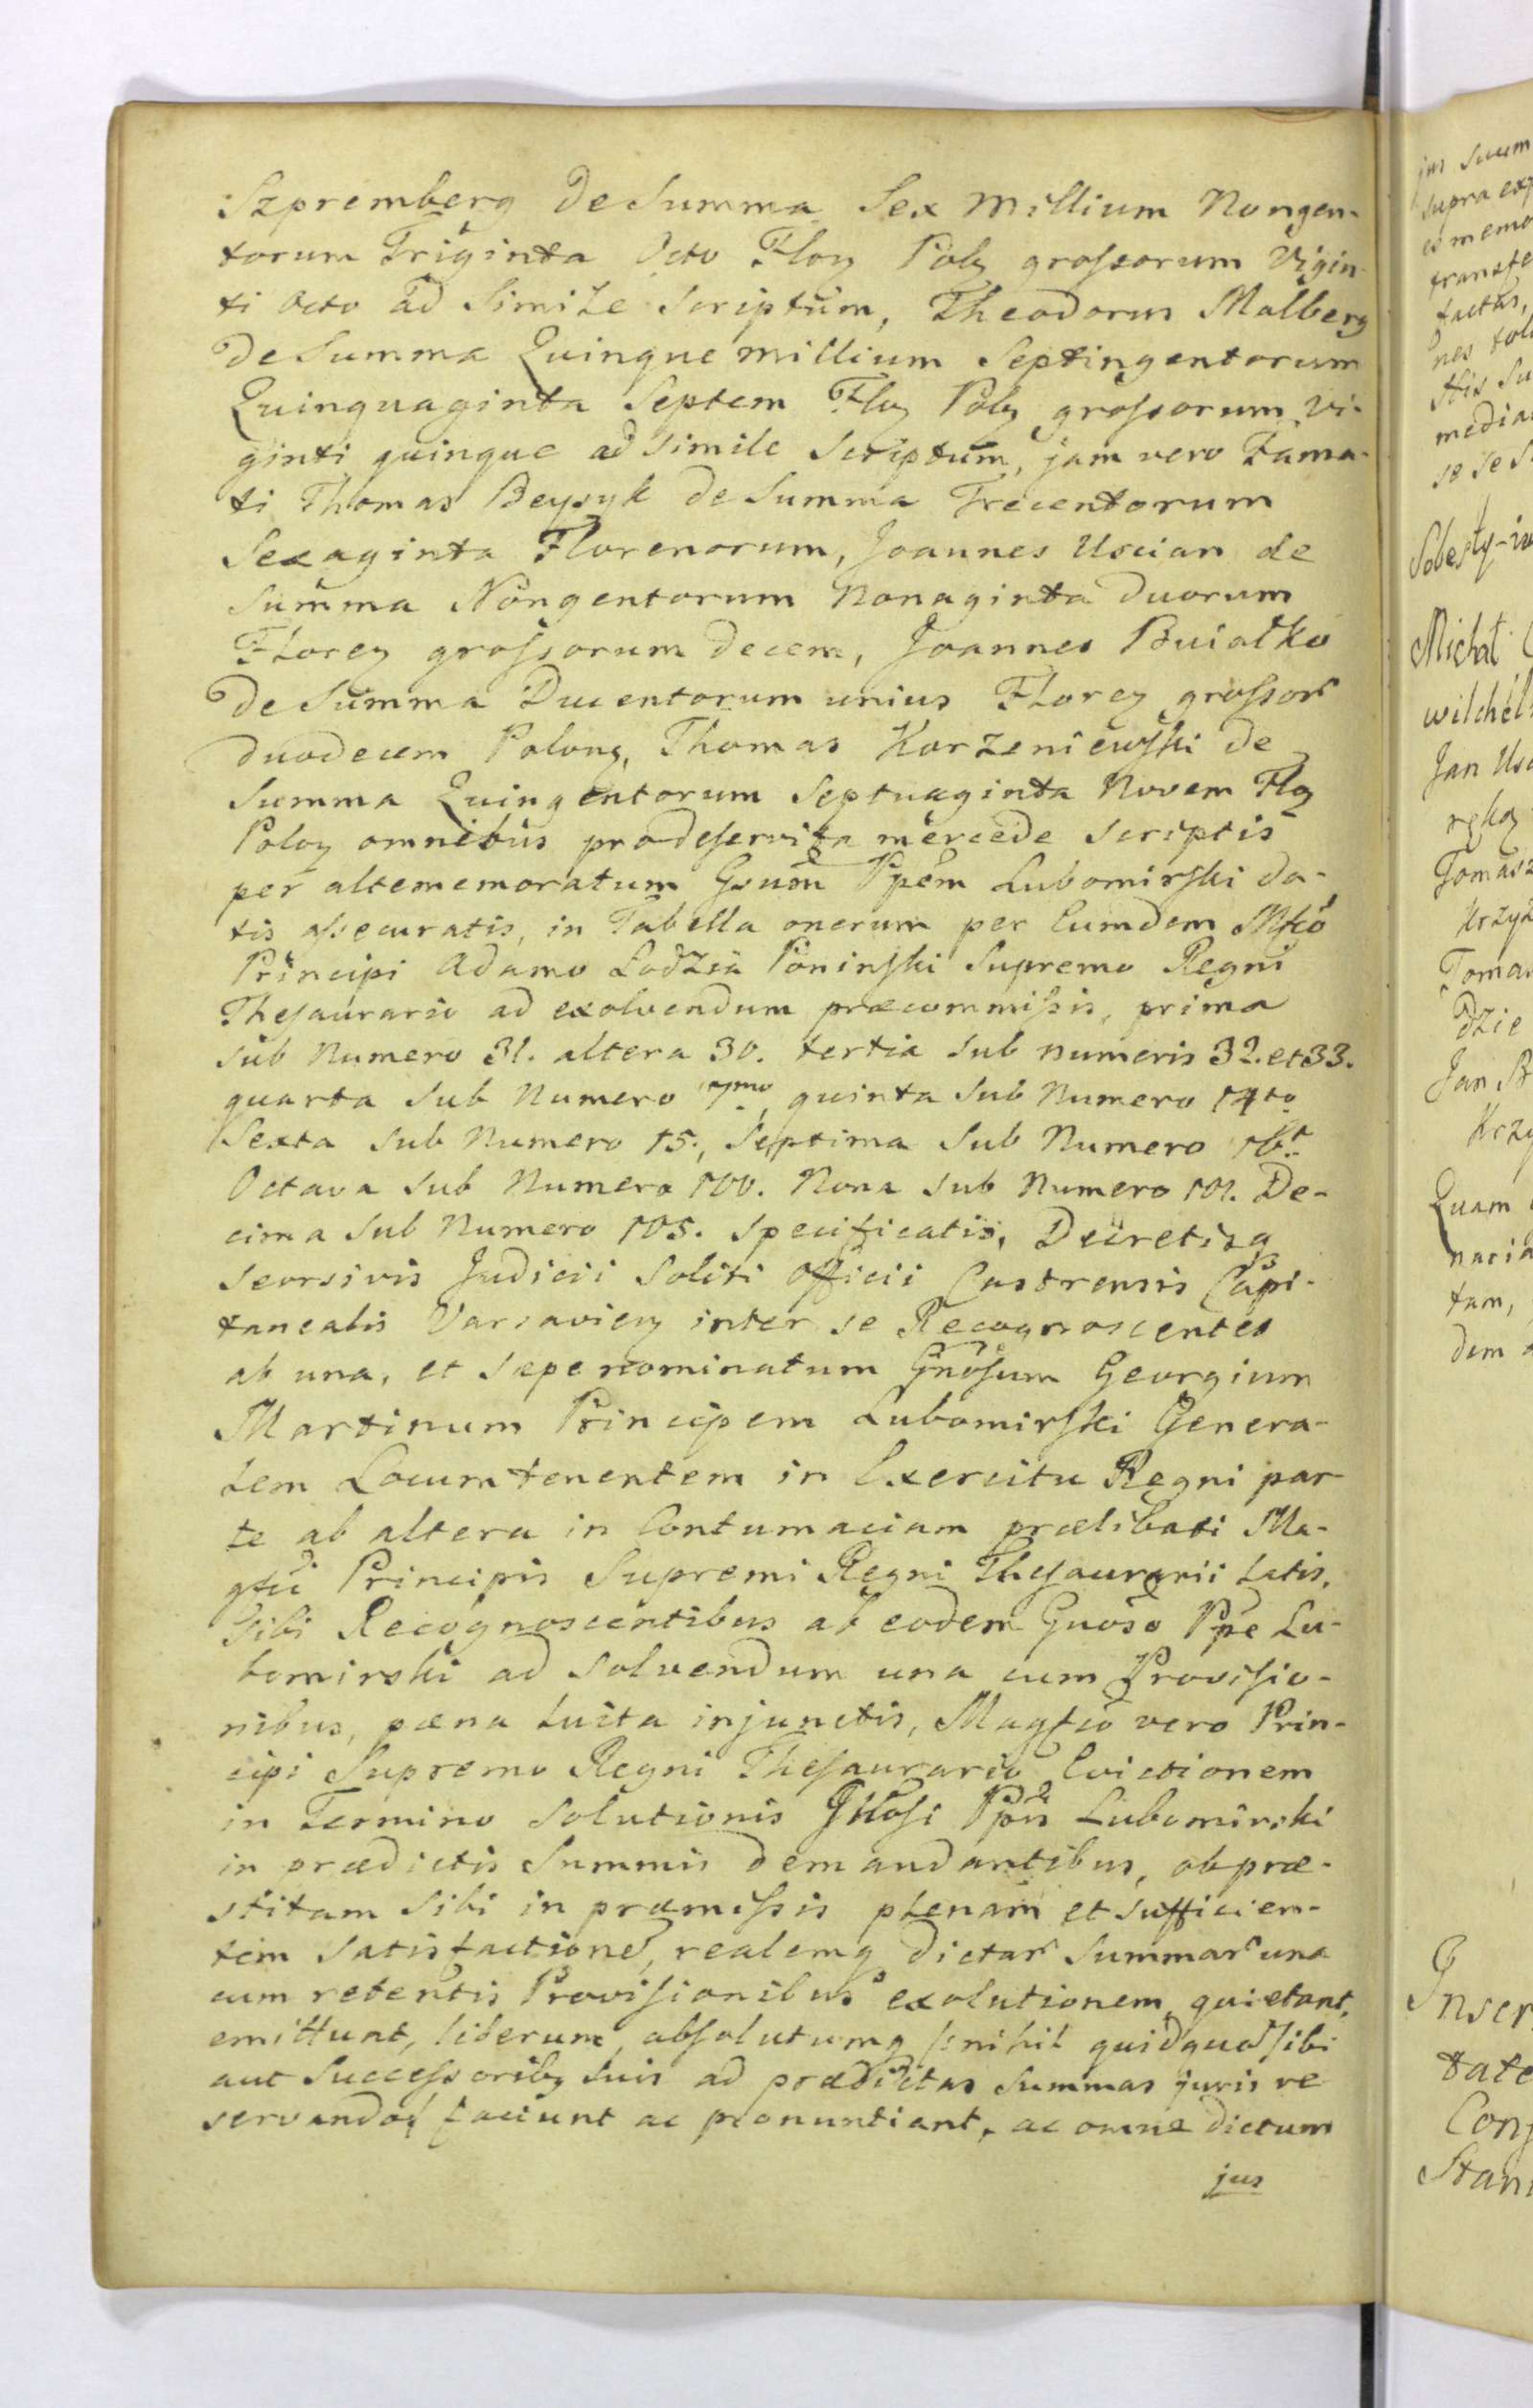 Szpremberg de Summa Sex Millium Nongen-
torum Triginta Octo Floꝝ Polꝝ grossorum Vigin-
ti Octo ad Simile Scriptum, Theodorus Malberg
de Summa Quinque millium Septingentorum
Quinquaginta Septem Flꝝ Polꝝ grossorum vi-
ginti quinque ad simile Scriptum, jam vero Fama-
ti Thomas Beysyk de Summa Trecentorum
Sexaginta Florenorum, Joannes Uscian de
Summa Nongentorum Nonaginta duorum
Floreꝝ grossorum decem, Joannes Buiałko
de Summa Ducentorum unius Floreꝝ grossor
duodecem Polonꝝ, Thomas Korzeniewski de
Summa Quingentorum Septuaginta Novem Floꝝ
Poloꝝ omnibus pro deservita mercede scriptis
per altememoratum Gsum Ppem Lubomirski da-
tis assecuratis, in Tabella onerum per Eumdem Mfco
Principi Adamo Lodzia Poninski Supremo Regni
Thesaurario ad exolvendum præcommissis, prima
sub Numero 31. altera 30. tertia sub numeris 32. et 33.
quarta sub Numero 7mo, quinta sub Numero 14to
Sexta sub Numero 15., Septima sub Numero 16.
Octava sub Numero 100. Nona sub Numero 101. De-
cima sub Numero 105. specificatis, Decretisq
seorsivis Judicii Soliti Officii Castrensis Capi-
tanealis Varsavieꝝ inter se Recognoscentes
ab una, et sæpe nominatum Gnosum Georgium
Martinum Principem Lubomirski Genera-
lem Locumtenentem in Exercitu Regni par-
te ab altera in Contumaciam prælibati Ma-
gfci Principis Supremi Regni Thesaurarii latis,
Sibi Recognoscentibus ab eodem Gnoso Ppe Lu-
bomirski ad Solvendum una cum Provisio-
nibus, pæna luita injunctis, Magfco vero Prin-
cipi Supremo Regni Thesaurario Evictionem
in Termino Solutionis Gnosi Ppis Lubomirski
in prædictis Summis demandantibus, ob præ-
stitam Sibi in præmissis plenam et sufficien-
tem Satisfactione, realemq dictar Summar una
cum retentis Provisionibus exolutionem quietant,
emittunt, liberum, absolutumq nihil quidqua sibi
aut Successoribꝫ Suis ad prædictas Summas juris re
servando faciunt ac pronuntiant, ac omne dictum
jus
jus suum
supra exp
transfe
factus,
media
se se
Michał
wilchel
Jan Usc
ręką
Tomasz
Krzyż
Toma
dzie
Jan B
Krzy
Quam
tam,
dem
Inser
tate
Stan